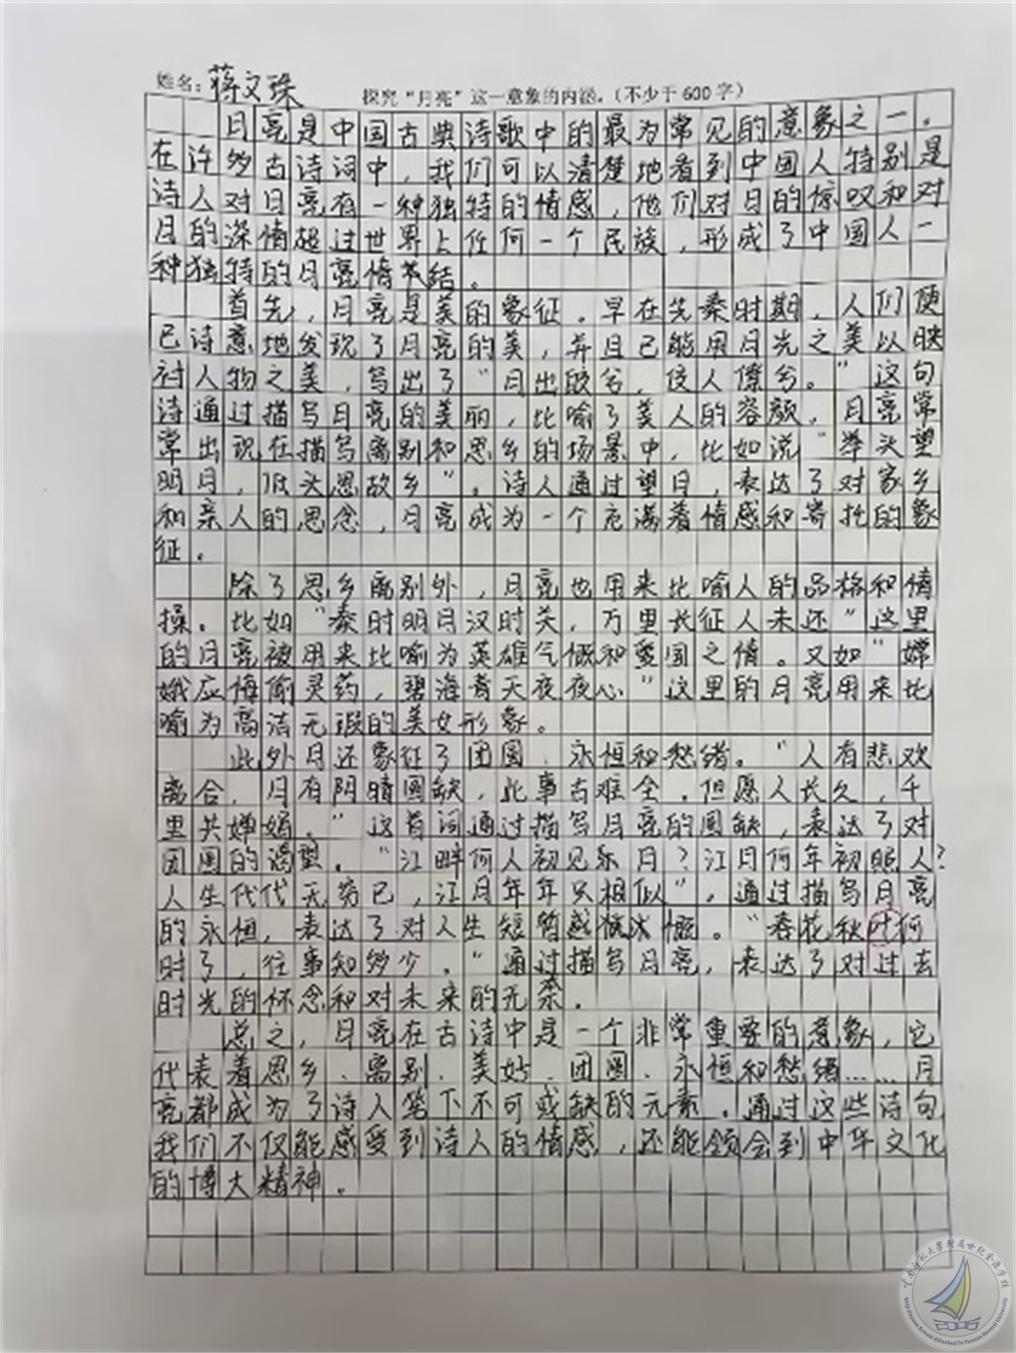 姓名：蒋文珠
探究“月亮”这一意象的内涵。（不少于600字）
月亮是中国古典诗歌中的最为常见的意象之一。
在许多古诗词中，我们可以清楚地看到中国人特别是
诗人对月亮有一种独特的情感，他们对月的惊叹和对
月的深情超过世界上任何一个民族，形成了中国人一
种独特的月亮情苯结。
首先，月亮是美的象征。早在先秦时期，人们便
已诗意地发现了月亮的美，并且已能用月光之美以映
衬人物之美，写出了“月出皎兮，佼人僚兮。”这句
诗通过描写月亮的美丽，比喻了美人的容颜。月亮常
常出现在描写离别和思乡的场景中，比如说“举头望
明月，低头思故乡”。诗人通过望月，表达了对家乡
和亲人的思念，月亮成为一个充满着情感和寄托的象
征。
除了思乡离别外，月亮也用来比喻人的品格和情
操。比如“秦时明月汉时关，万里长征人未还”这里
的月亮被用来比喻为英雄气慨和爱国之情。又如“嫦
娥应悔偷灵药，碧海青天夜夜心”这里的月亮用来比
喻为高洁无瑕的美女形象。
此外月还象征了团圆、永恒和愁绪。“人有悲欢
离合，月有阴晴圆缺，此事古难全。但愿人长久，千
里共婵娟。”这首词通过描写月亮的圆缺，表达了对
团圆的渴望。“江畔何人初见月？江月何年初照人？
人生代代无穷已，江月年年只相似”，通过描写月亮
的永恒，表达了对人生短暂感慨。“春花秋叶何
时了，往事知多少。”通过描写月亮，表达了对过去
时光的怀念和对未来的无奈。
总之，月亮在古诗中是一个非常重要的意象，它
代表着思乡、离别、美好、团圆、永恒和愁绪……月
亮都成为了诗人笔下不可或缺的元素。通过这些诗句
我们不仅能感受到诗人的情感，还能领会到中华文化
的博大精神。
云南师范大学附属世纪金源学校